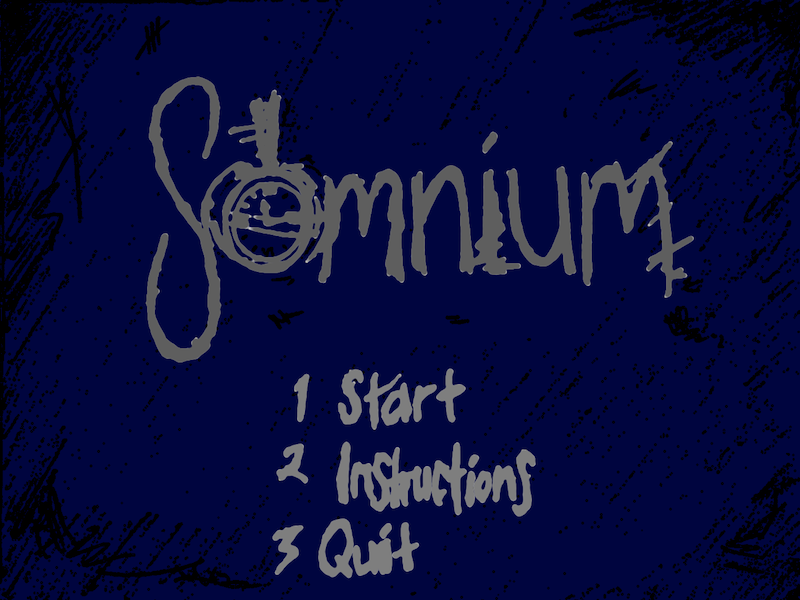 Somnium
1 Start
2 Instructions
3 Quit